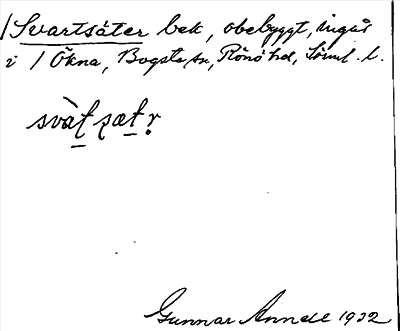 / Svartsäter bek, obebyggt, ingår
i / Ökna, Bogsta sn, Rönö hd, Söml. l.
svàt sæt r
Gunnar Annell 1932